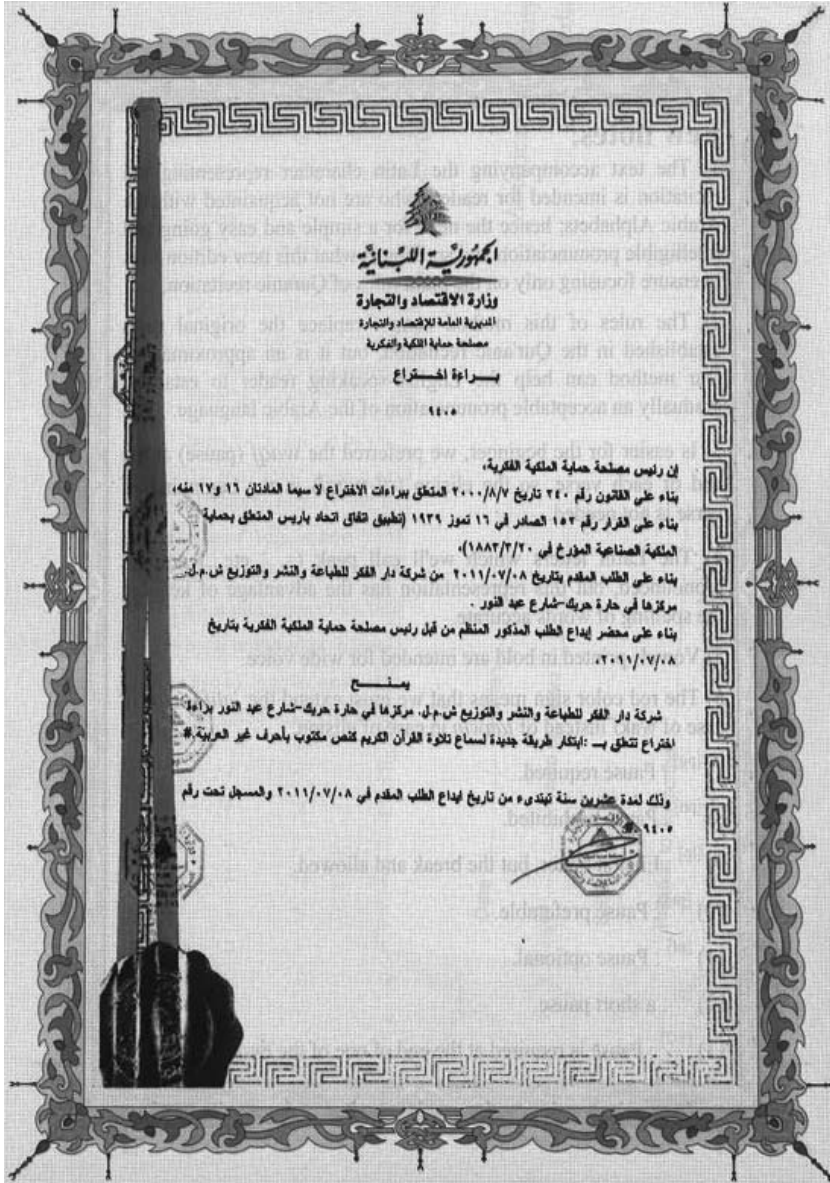 الجمهورية اللبنانية
وزارة الاقتصاد والتجارة
المديرية العامة للإقتصاد والتجارة
مصلحة حماية الملكية والفكرية
بـــراءة اخـــتراع
٩٤٠٥
إن رئيس مصلحة حماية الملكية الفكرية،
بناء على القانون رقم ٢٤٠ تاريخ ٢٠٠٠/٨/٧ المتعلق ببراءات الاختراع لا سيما المادتان ١٦ و١٧ منه،
بناء على القرار رقم ١٥٢ الصادر في ١٦ تموز ١٩٣٩ (تطبيق اتفاق اتحاد باريس المتعلق بحماية
الملكية الصناعية المؤرخ في ١٨٨٣/٣/٢٠)،
بناء على الطلب المقدم بتاريخ ٢٠١١/٠٧/٠٨ من شركة دار الفكر للطباعة والنشر والتوزيع ش.م.ل.
مركزها في حارة حريك-شارع عبد النور .
بناء على محضر إيداع الطلب المذكور المنظم من قبل رئيس مصلحة حماية الملكية الفكرية بتاريخ
٢٠١١/٠٧/٠٨،
يمنـــــح
شركة دار الفكر للطباعة والنشر والتوزيع ش.م.ل. مركزها في حارة حريك-شارع عبد النور براءة
اختراع تتعلق بــ :ابتكار طريقة جديدة لسماع تلاوة القرآن الكريم كنص مكتوب بأحرف غير العربية.#
وذلك لمدة عشرين سنة تبتدىء من تاريخ ايداع الطلب المقدم في ٢٠١١/٠٧/٠٨ والمسجل تحت رقم
٩٤٠٥.#